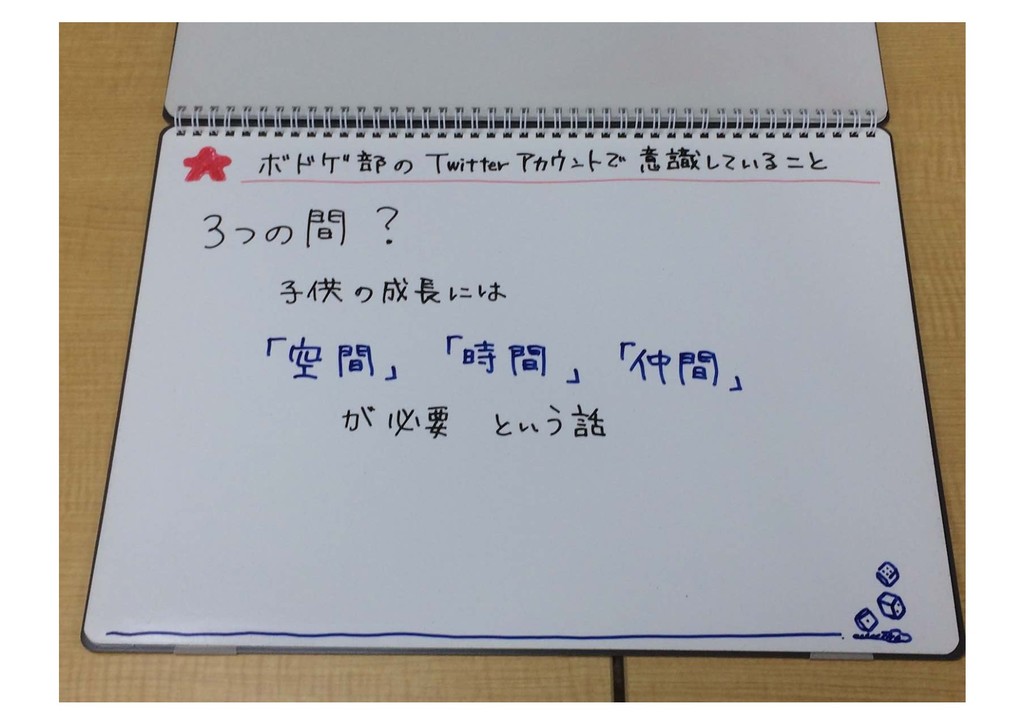 ボドゲ部のTwitterアカウントで意識していること
3つの間?
子供の成長には
「空間」「時間」「仲間」
が必要 という話